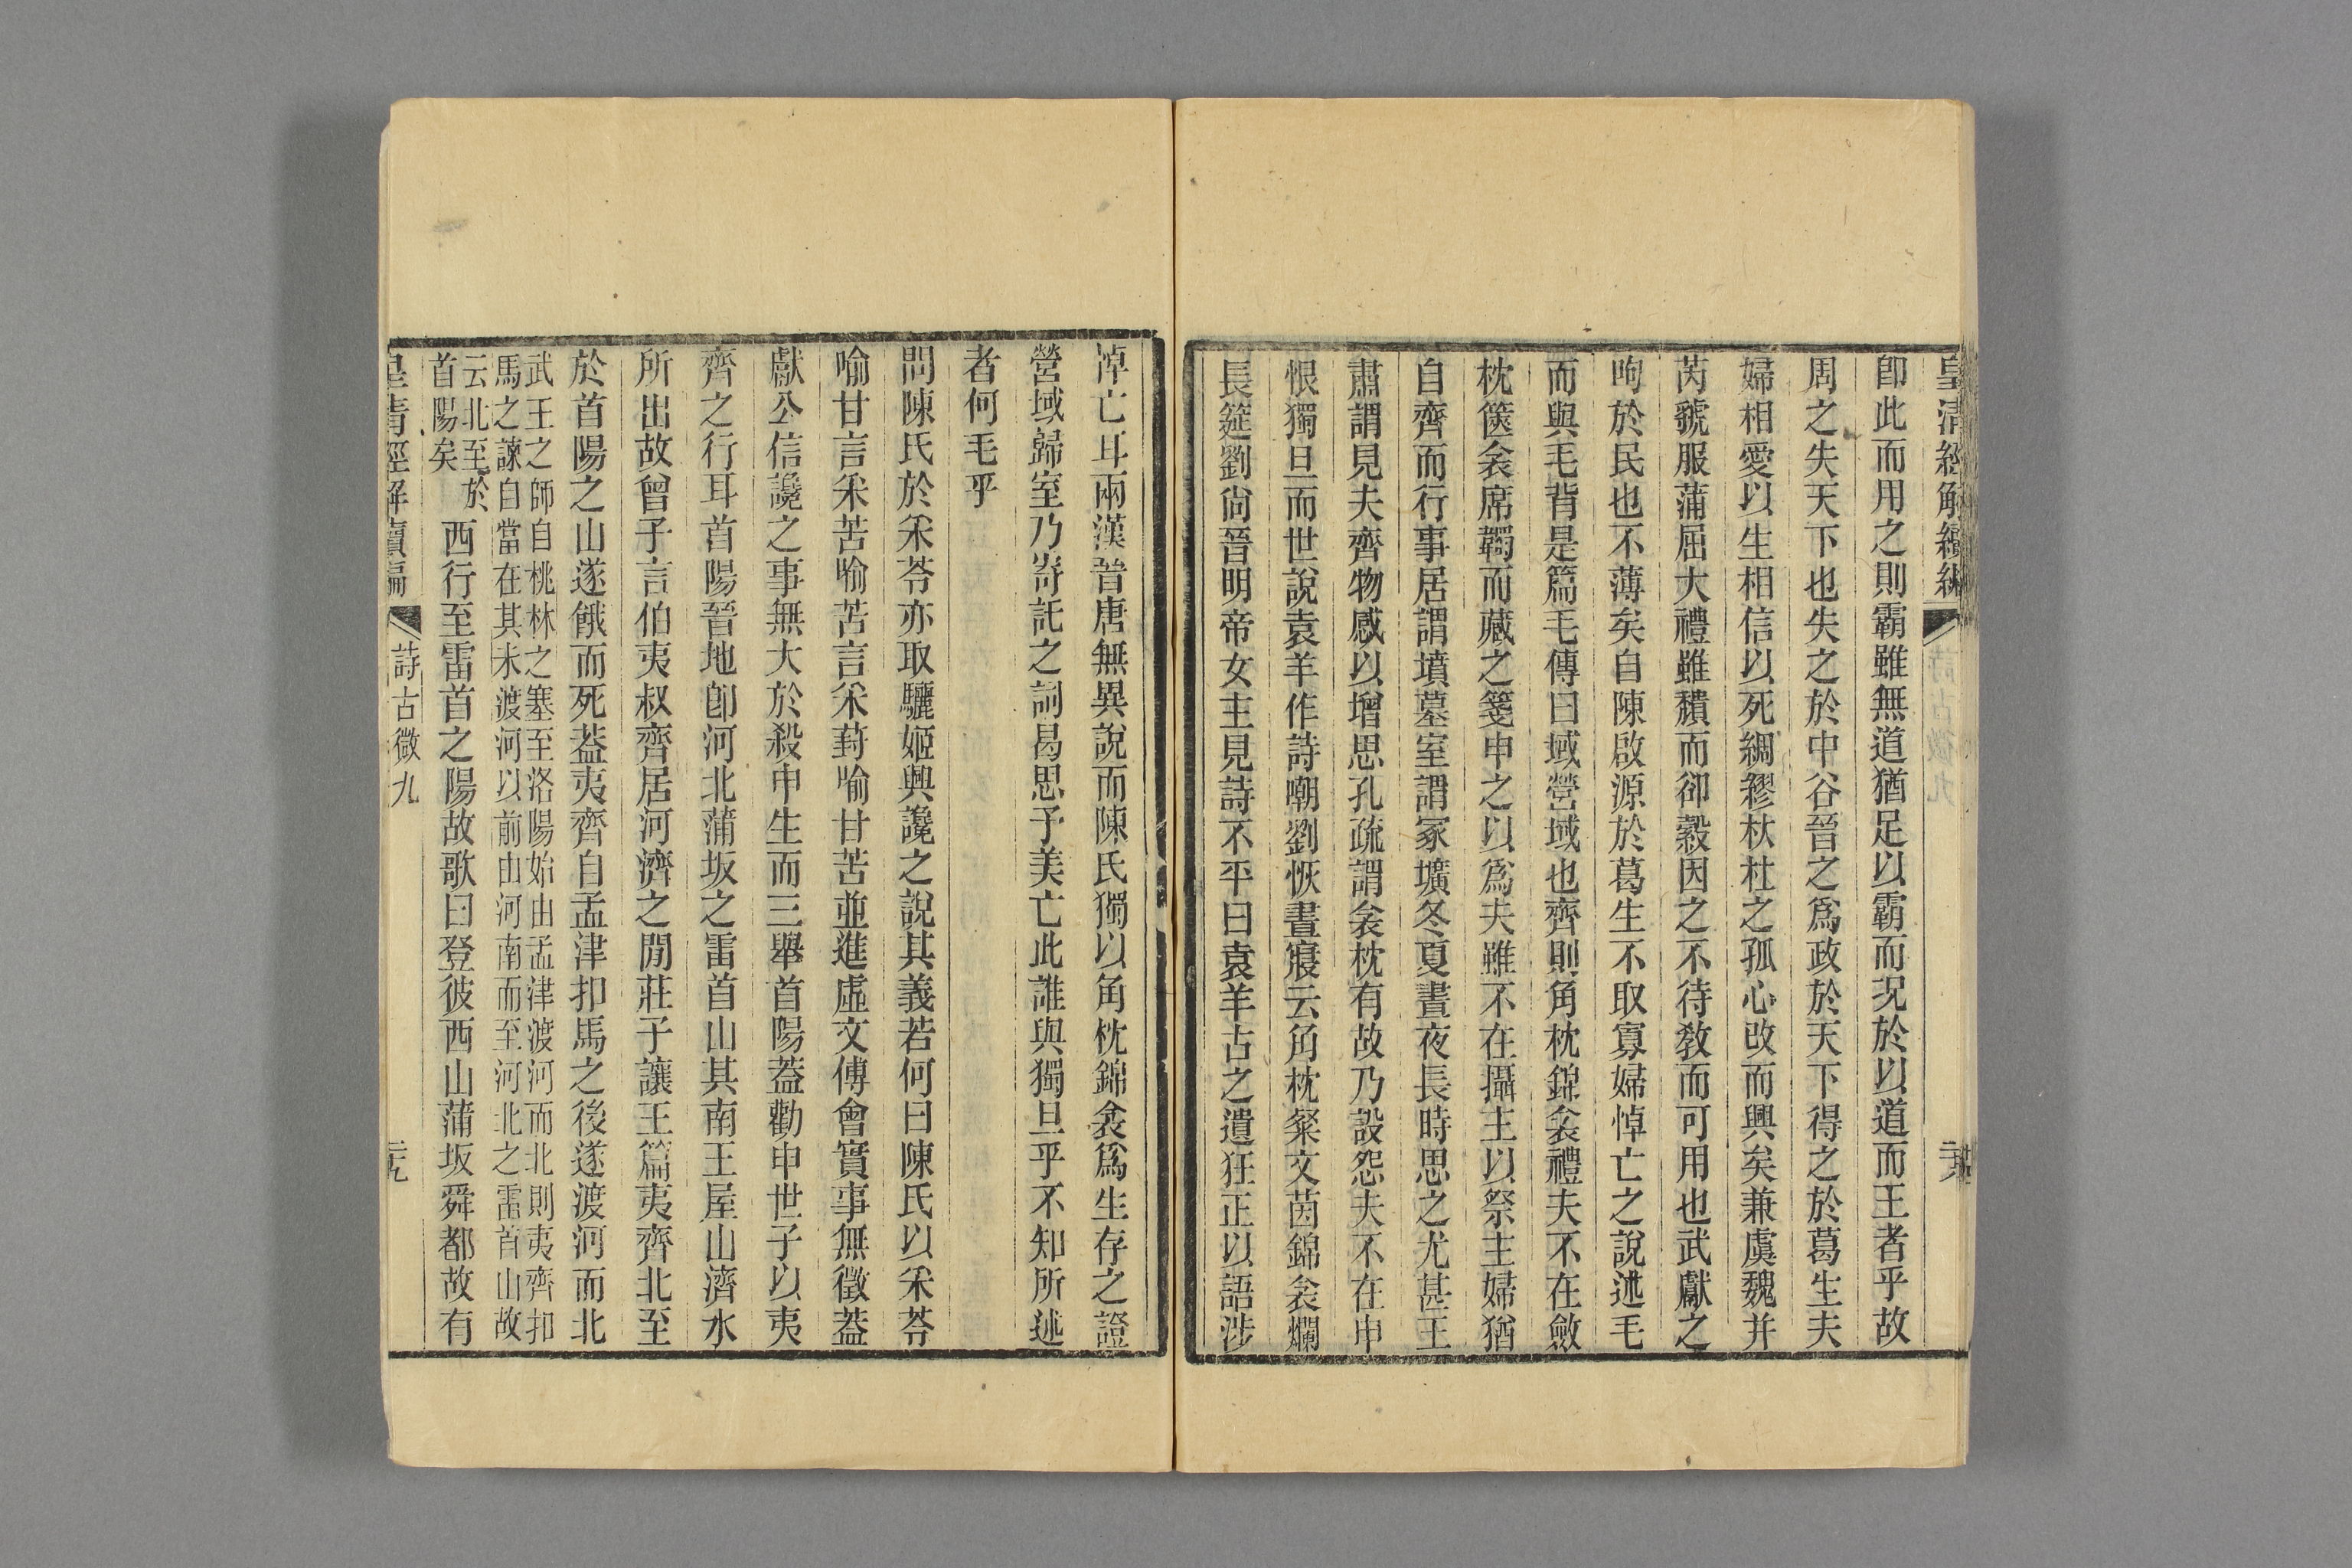 皇清經解續編
卽此而用之則霸雖無道猶足以霸而況於以道而王者乎故
周之失天下也失之於中谷晉之爲政於天下得之於葛生夫
婦相愛以生相信以死綢繆杕杜之孤心改而興矣兼虞魏并
芮虢服蒲屈大禮雖穨而卻縠因之不待敎而可用也武獻之
呴於民也不薄矣自陳啟源於葛生不取寡婦悼亡之說述毛
而與毛背是篇毛傳曰域營域也齊則角枕錦衾禮夫不在斂
枕篋衾席韣而藏之箋申之以爲夫雖不在攝主以祭主婦猶
自齊而行事居謂墳墓室謂冢壙冬夏晝夜長時思之尤甚王
肅謂見夫齊物感以增思孔疏謂衾枕有故乃設怨夫不在申
恨獨旦而世說袁羊作詩嘲劉恢晝寢云角枕粲文茵錦衾爛
長筵劉尙晉明帝女主見詩不平曰袁羊古之遺狂正以語涉
悼亡耳兩漢晉唐無異說而陳氏獨以角枕錦衾爲生存之證
營域歸室乃寄託之詞曷思予美亡此誰與獨旦乎不知所述
者何毛乎
問陳氏於采苓亦取驪姬興讒之說其義若何曰陳氏以采苓
喻甘言采苦喻苦言采葑喻甘苦並進虛文傅會實事無徵葢
獻公信讒之事無大於殺申生而三舉首陽葢勸申世子以夷
齊之行耳首陽晉地卽河北蒲坂之雷首山其南王屋山濟水
所出故曾子言伯夷叔齊居河濟之閒莊子讓王篇夷齊北至
於首陽之山遂餓而死葢夷齊自孟津扣馬之後遂渡河而北
武王之師自桃林之塞至洛陽始由孟津渡河而北則夷齊扣
馬之諫自當在其未渡河以前由河南而至河北之雷首山故
云北至於
首陽矣
西行至雷首之陽故歌曰登彼西山蒲坂舜都故有
皇清經解續編
詩古微九